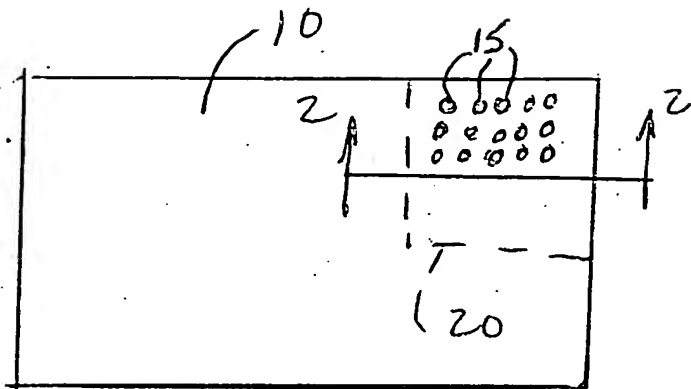 10
15
2
2
20